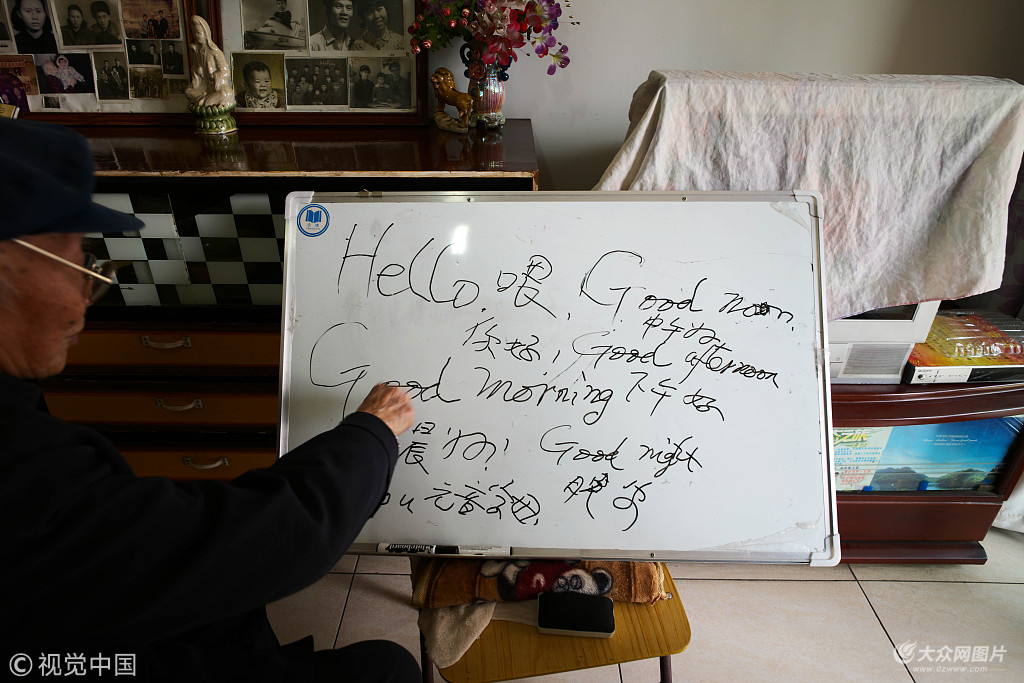 Hello. 喂, Good noon.
中午好
你好, Good afternoon
Good morning 下午好
晨好, Good night
u 元音字母. 晚安
whiteboard
© 视觉中国
大众网图片
www.dzwww.com